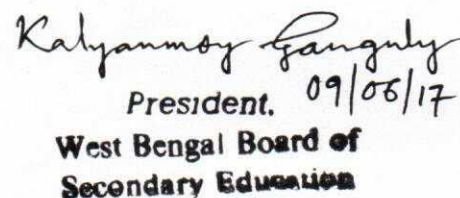 Kalyanmoy Ganguly
09/06/17
President.
West Bengal Board of
Secondary Education